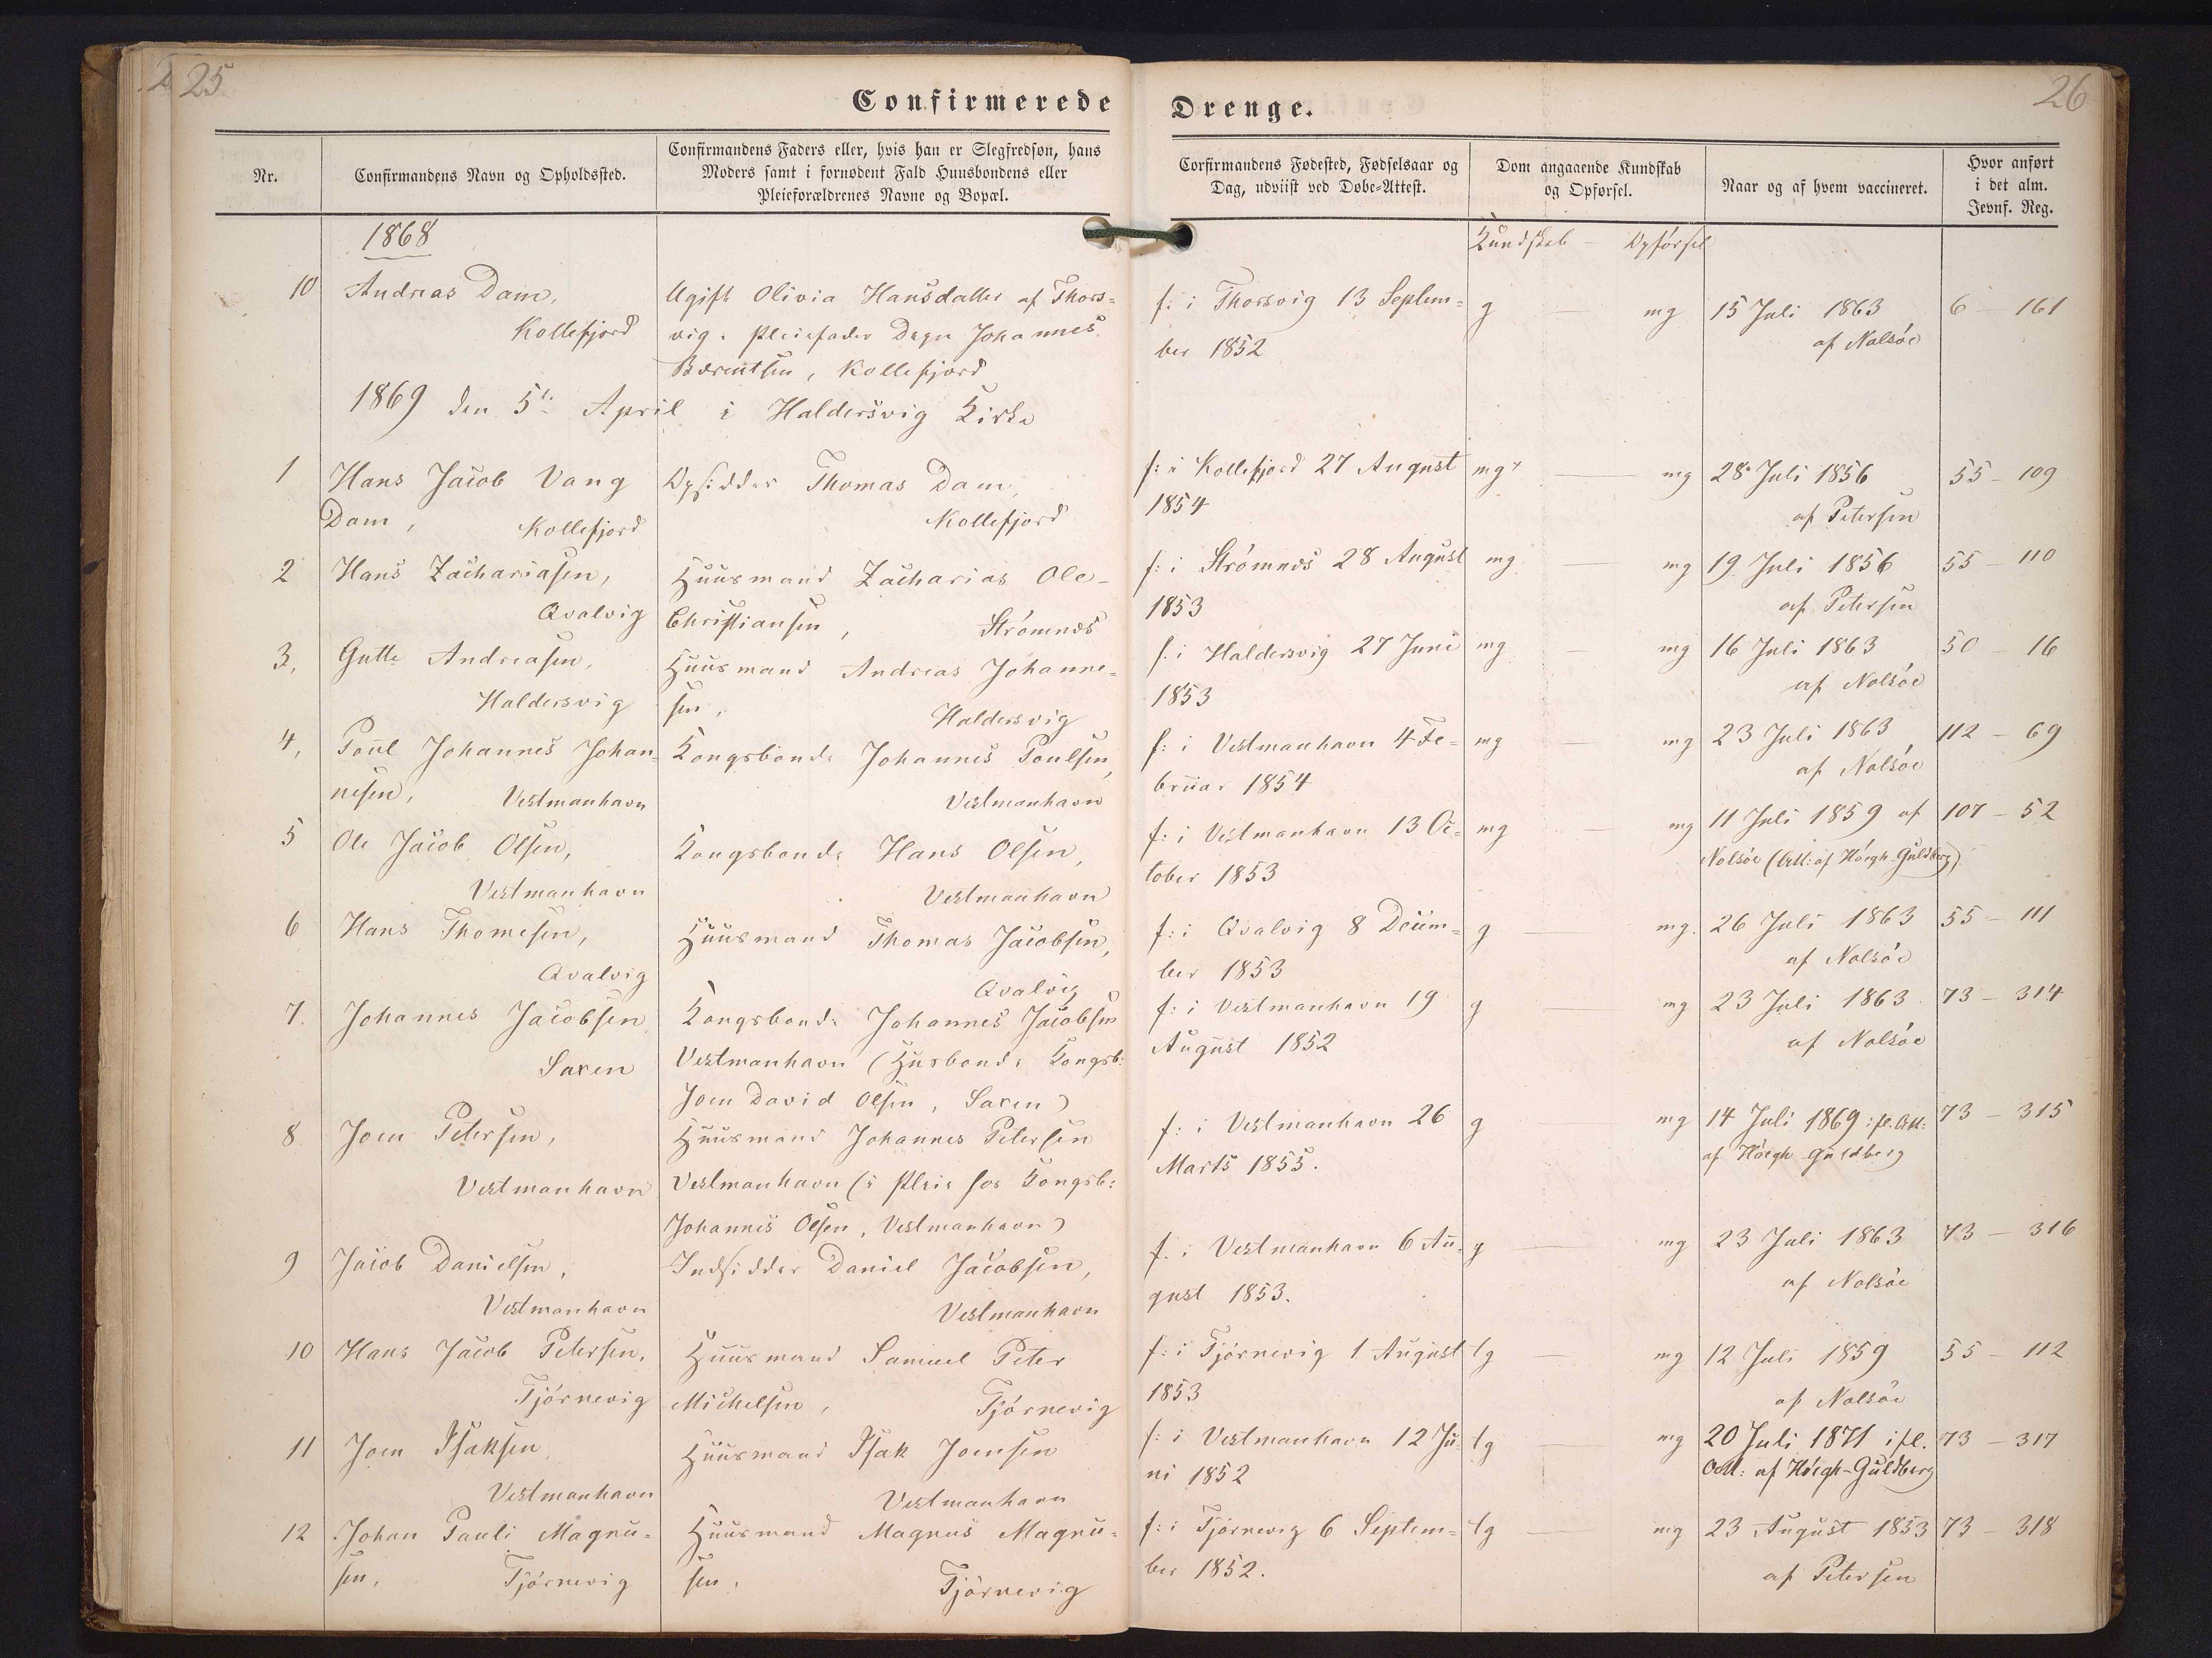 25
26
Confirmerede Drenge.
Nr.
Confirmandens Navn og Opholdssted.
Confirmandens Faders eller, hvis han er Slegfredsøn, hans
Moders samt i fornødent Fald Huusbondens eller
Pleieforældrenes Navne og Bopæl.
Corfirmandens Fødested, Fødselsaar og
Dag, udviist ved Døbe-Attest.
Dom angaaende Kundskab
og Opførsel.
Naar og af hvem vaccineret.
Hvor anført
i det alm.
Jevnf. Reg.
1868
Kundskab – Opførsel
10 Andreas Dam,
Kollefjord
Ugift Olivia Hansdatter af Thors-
vig. Pleiefader Degn Johannes
Bærentsen, Kollefjord
f: i Thorsvig 13 Septem-
ber 1852
g — mg
15 Juli 1863
af Nolsöe
6 – 161
1869 den 5te April i Haldersvig Kirke
1 Hans Jacob Vang
Dam, Kollefjord
Opsidder Thomas Dam,
Kollefjord
f: i Kollefjord 27 August
1854
mg+ — mg
28 Juli 1856
af Petersen
55 – 109
2 Hans Zachariasen,
Qvalvig
Huusmand Zacharias Ole-
Christiansen, Strömnæs
f: i Strömnæs 28 August
1853
mg — mg
19 Juli 1856
af Petersen
55 – 110
3, Gutte Andreasen,
Haldersvig
Huusmand Andreas Johanne-
sen, Haldersvig
f. i Haldersvig 27 Juni
1853
mg — mg
16 Juli 1863
af Nolsöe
50 – 16
4, Poul Johannes Johan-
nesen, Vestmanhavn
Kongsbonde Johannes Poulsen,
Vestmanhavn
f: i Vestmanhavn 4 Fe-
bruar 1854
mg — mg
23 Juli 1863
af Nolsöe
112 – 69
5 Ole Jacob Olsen,
Vestmanhavn
Kongsbonde Hans Olsen,
Vestmanhavn
f: i Vestmanhavn 13 Oc-
tober 1853
mg — mg
11 Juli 1859 af
Nolsöe (Att: af Höegh-Guldberg)
107 – 52
6 Hans Thomesen,
Qvalvig
Huusmand Thomas Jacobsen,
Qvalvig
f: i Qvalvig 8 Decem-
ber 1853
g — mg.
26 Juli 1863
af Nolsöe
55 – 111
7. Johannes Jacobsen,
Saxen
Kongsbonde Johannes Jacobsen
Vestmanhavn (Husbonde Kongsb:
Joen David Olsen, Saxen)
f: i Vestmanhavn 19
August 1852
g — mg
23 Juli 1863
af Nolsöe
73 – 314
8. Joen Petersen,
Vestmanhavn
Huusmand Johannes Petersen
Vestmanhavn (i Pleie hos Kongsb:
Johannes Olsen, Vestmanhavn)
f: i Vestmanhavn 26
Marts 1855.
g — mg
14 Juli 1869 if. Att:
af Höegh-Guldberg
73 – 315
9 Jacob Danielsen,
Vestmanhavn
Indsidder Daniel Jacobsen,
Vestmanhavn
f. i Vestmanhavn 6 Au-
gust 1853.
g — mg
23 Juli 1863
af Nolsöe
73 – 316
10 Hans Jacob Petersen,
Tjörnevig
Huusmand Samuel Peter
Michelsen, Tjörnevig
f: i Tjörnevig 1 August
1853
tg — mg
12 Juli 1859
af Nolsöe
55 – 112
11 Joen Isaksen,
Vestmanhavn
Huusmand Isak Joensen
Vestmanhavn
f: i Vestmanhavn 12 Ju-
ni 1852
tg — mg
20 Juli 1871 ifl.
Att: af Höegh-Guldberg
73 – 317
12 Johan Pauli Magnu-
sen, Tjörnevig
Huusmand Magnus Magnu-
sen, Tjörnevig
f: i Tjörnevig 6 Septem-
ber 1852.
tg — mg
23 August 1853
af Petersen
73 – 318